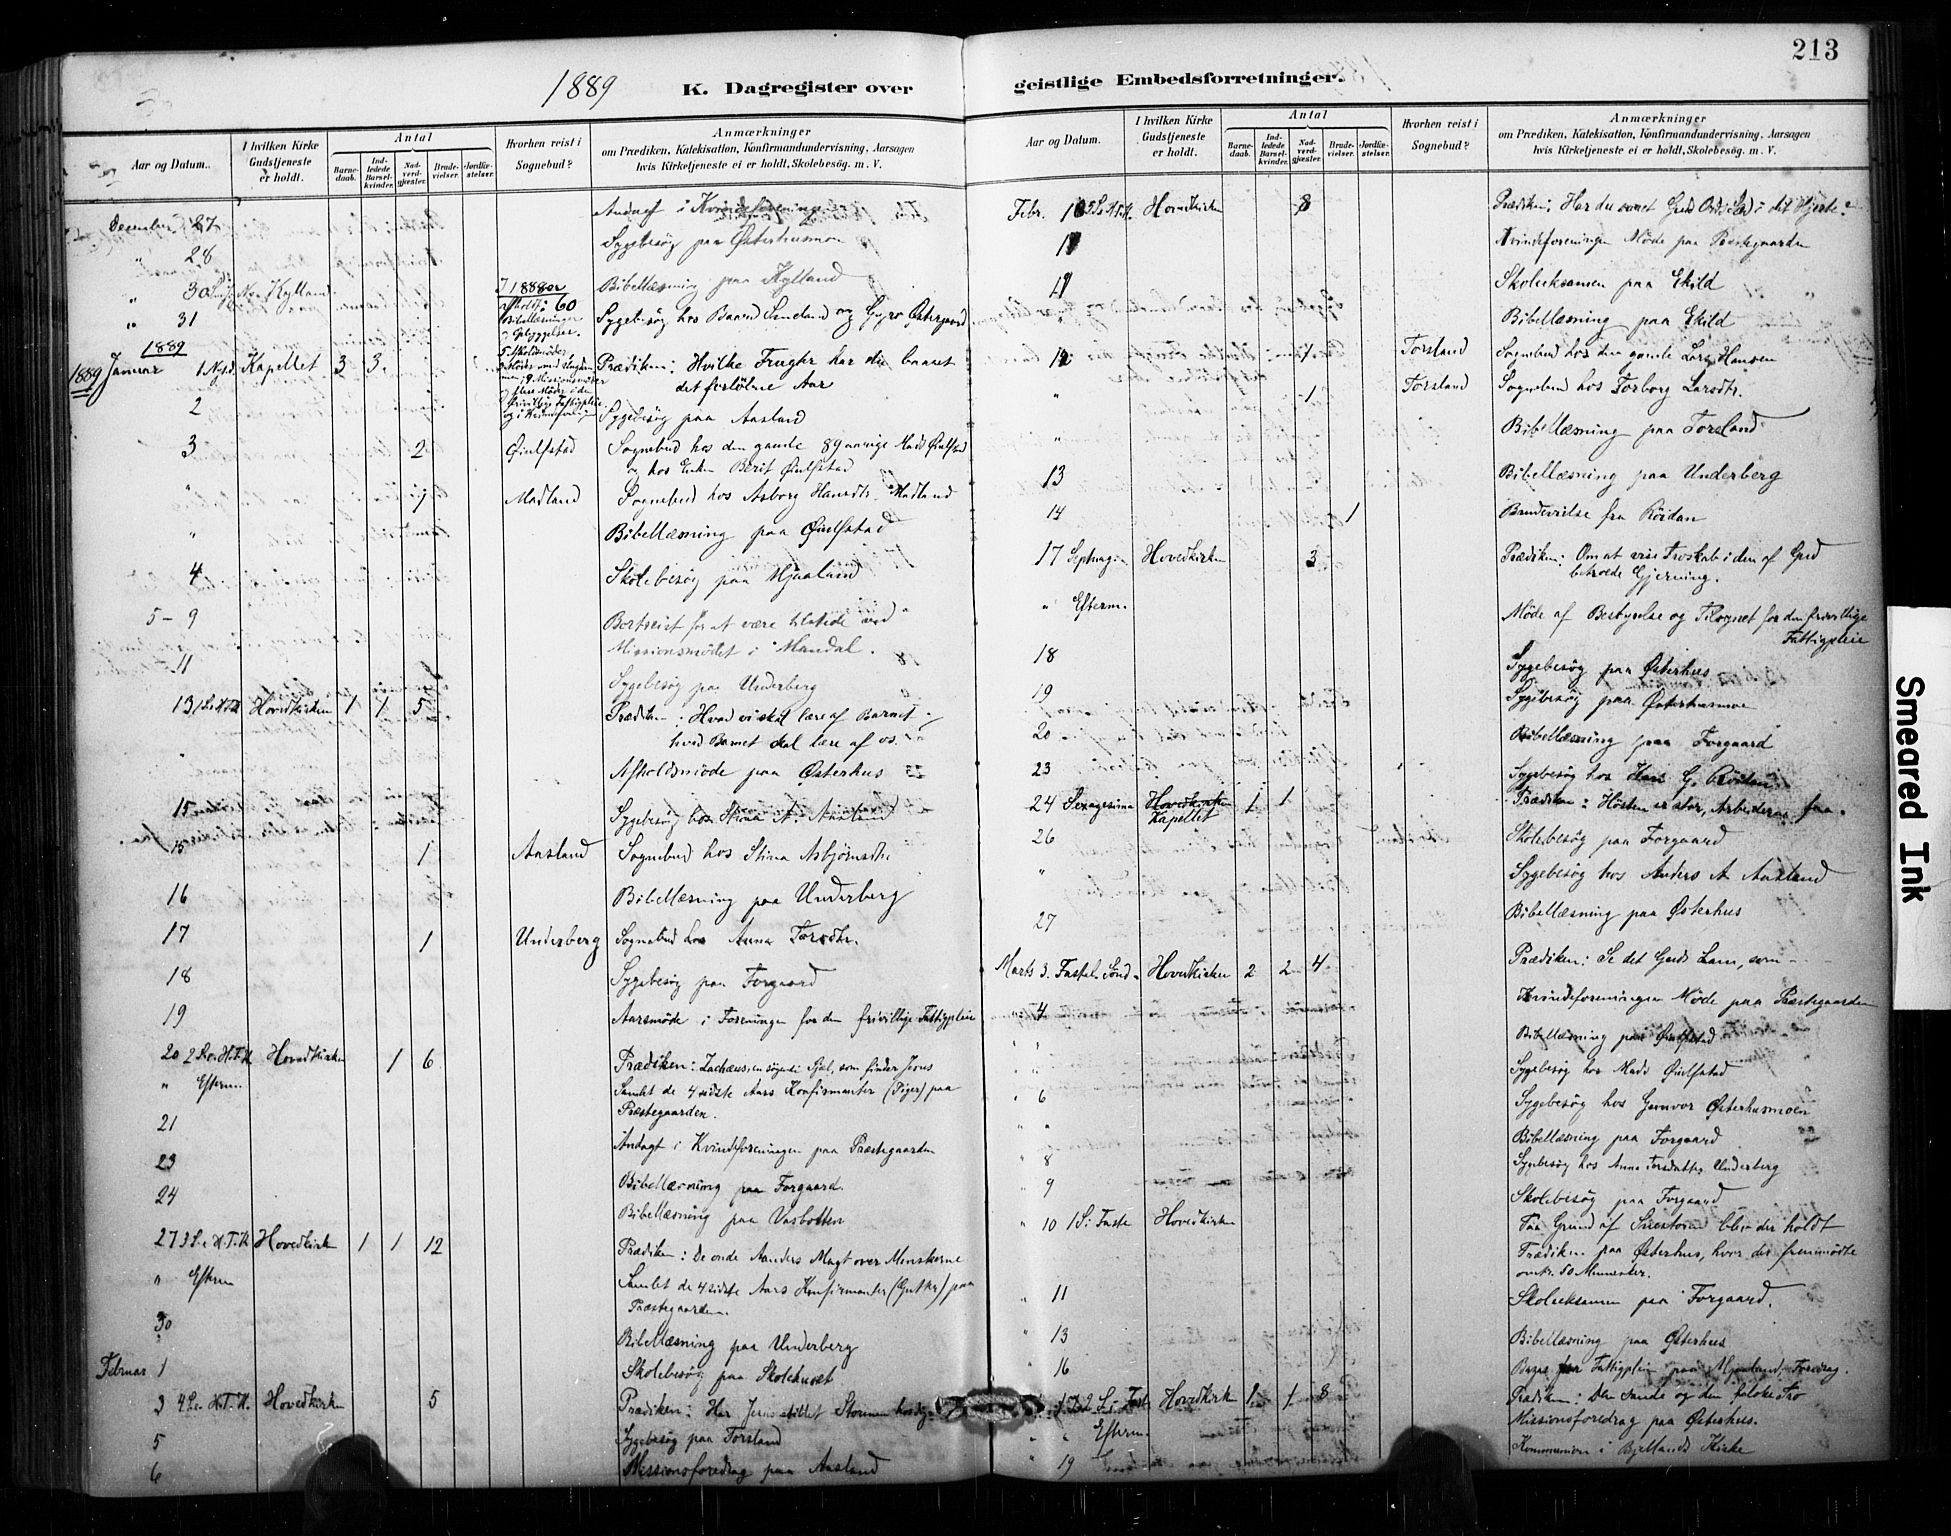 213
1889 K. Dagregister over geistlige Embedsforretninger.
Aar og Datum.
I hvilken Kirke Gudstjeneste er holdt.
Antal
Barne-daab.
Ind-ledede Barsel-kvinder.
Nad-verd-gjester.
Brude-vielser.
Jordfæ-stelser.
Hvorhen reist i Sognebud?
Anmærkninger
om Prædiken, Katekisation, Konfirmandundervisning, Aarsagen
hvis Kirketjeneste ei er holdt, Skolebesøg. m. V.
December 27 Andagt i Kvindeforeningen
" 28 Sygebesøg paa Østerhusmoen
" 30 Kylland Bibellæsning paa Kylland
" 31 Sygebesøg hos Baard Smeland og Gyro Østergaard
1889
1889 Januar 1 Nysd. Kapellet 3 3 Prædiken: Hvilke Frugter har du baaret
det forløbne Aar
2 Sygebesøg paa Aasland
3 2 Øiulfstad Sognebud hos den gamle 89 aarige Mads Øiulfstad
og hos Enken Berit Øiulfstad
" 1 Madland Sognebud hos Asborg Hansdtr. Madland
" Bibellæsning paa Øiulfstad
4 Skolebesøg paa Mjaaland
5 - 9 Bortreist for at være tilstede ved
Missionsmødet i Mandal.
11 Sygebesøg paa Underberg
13 1 S. e. H.T.K. Hovedkirken 1 1 5 Prædiken: Hvad vi skal lære af Barnet -
hvad Barnet skal lære af os.
" Afholdsmøde paa Østerhus
15 Sygebesøg hos Stina A. Aasland
15 1 Aasland Sognebud hos Stina Asbjørnsdtr
16 Bibellæsning paa Underberg
17 1 Underberg Sognebud hos Anna Torsdtr.
18 Sygebesøg paa Forgaard
19 Aarsmøde i Foreningen for den frivillige Fattigpleie
20 2 S. e. H.T.K. Hovedkirken 1 6 Prædiken: Zachæus, en søgende Sjæl, som finder Jesus
" Efterm. Samlet de 4 sidste Aars Konfirmanter (Piger) paa
Præstegaarden.
21 Andagt i Kvindeforeningen paa Præstegaarden
23 Bibellæsning paa Forgaard.
24 Bibellæsning paa Vasbotten
27 3 S. e. H.T.K. Hovedkirk 1 1 12 Prædiken: De onde Aanders Magt over Menskerne
" Efterm Samlet de 4 sidste Aars Konfirmanter (Gutter) paa
Præstegaarden.
30 Bibellæsning paa Underberg
Februar 1 Skolebesøg paa Skolehuset
3 4 S. e. H.T.K. Hovedkirken 5 Prædiken: Har Jesus stillet Stormen
5 Sygebesøg paa Torsland
6 Missionsforedrag paa Aasland
Aar og Datum.
I hvilken Kirke Gudstjeneste er holdt.
Antal
Barne-daab.
Ind-ledede Barsel-kvinder.
Nad-verd-gjester.
Brude-vielser.
Jordfæ-stelser.
Hvorhen reist i Sognebud?
Anmærkninger
om Prædiken, Katekisation, Konfirmandundervisning, Aarsagen
hvis Kirketjeneste ei er holdt, Skolebesøg. m. V.
Febr. 10 5 S. e. H.T.K. Hovedkirken 8 Prædiken: Har du Guds Ord i dit Hjerte?
11 Kvindeforeningen Møde paa Præstegaarden
Skoleeksamen paa Ekild
" Bibellæsning paa Ekild
12 1 Torsland Sognebud hos den gamle Lars Hansen
" 1 Torsland Sognebud hos Torborg Larsdtr.
" Bibellæsning paa Torsland
13 Bibellæsning paa Underberg
14 1 Brudevielse fra Röidan
17 Septuag. Hovedkirken 3 Prædiken: Om at vise Troskab i den af Gud
betroede Gjerning.
" Efterm. Møde af Bestyrelse og Tilsynet for den frivillige
Fattigpleie
18 Sygebesøg paa Østerhus
19 Sygebesøg paa Østerhusmoen
20 Bibellæsning paa Forgaard
23 Sygebesøg hos Hans G. Röidan
24 Sexagesima Hovedkirken Kapellet 1 1 Prædiken: Høsten er stor, Arbeiderne faa.
26 Skolebesøg paa Forgaard
" Sygebesøg hos Anders A Aasland
27 Bibellæsning paa Østerhus
Marts 3. Fastel. Sønd. Hovedkirken 2 2 4 Prædiken: Se det Guds Lam, som - -
" 4 Kvindeforeningen Møde paa Præstegaarden
" Bibellæsning paa Øiulfstad
" Sygebesøg hos Mads Øiulfstad
" 6 Sygebesøg hos Gunvor Østerhusmoen
" " Bibellæsning paa Forgaard
" 8 Sygebesøg hos Anna Torsdatter Underberg
" 9 Skolebesøg paa Forgaard
" 10 1 S. i Faste Hovedkirken Paa Grund af Snestorm blev der holdt
Prædiken paa Østerhus, hvor der fremmødte
omtr. 50 Mennesker.
" 11 Skoleeksamen paa Forgaard.
" 13 Bibellæsning paa Østerhus
" 16 for Fattigpleien paa Mjaaland, Foredrag.
17 2 S. i Fast. Hovedkirk 1 1 8 Prædiken: Den sande og den falske Tro
" " Efterm. Missionsforedrag paa Østerhus.
" 19 Kommunion i Bjellands Kirke
Smeared Ink